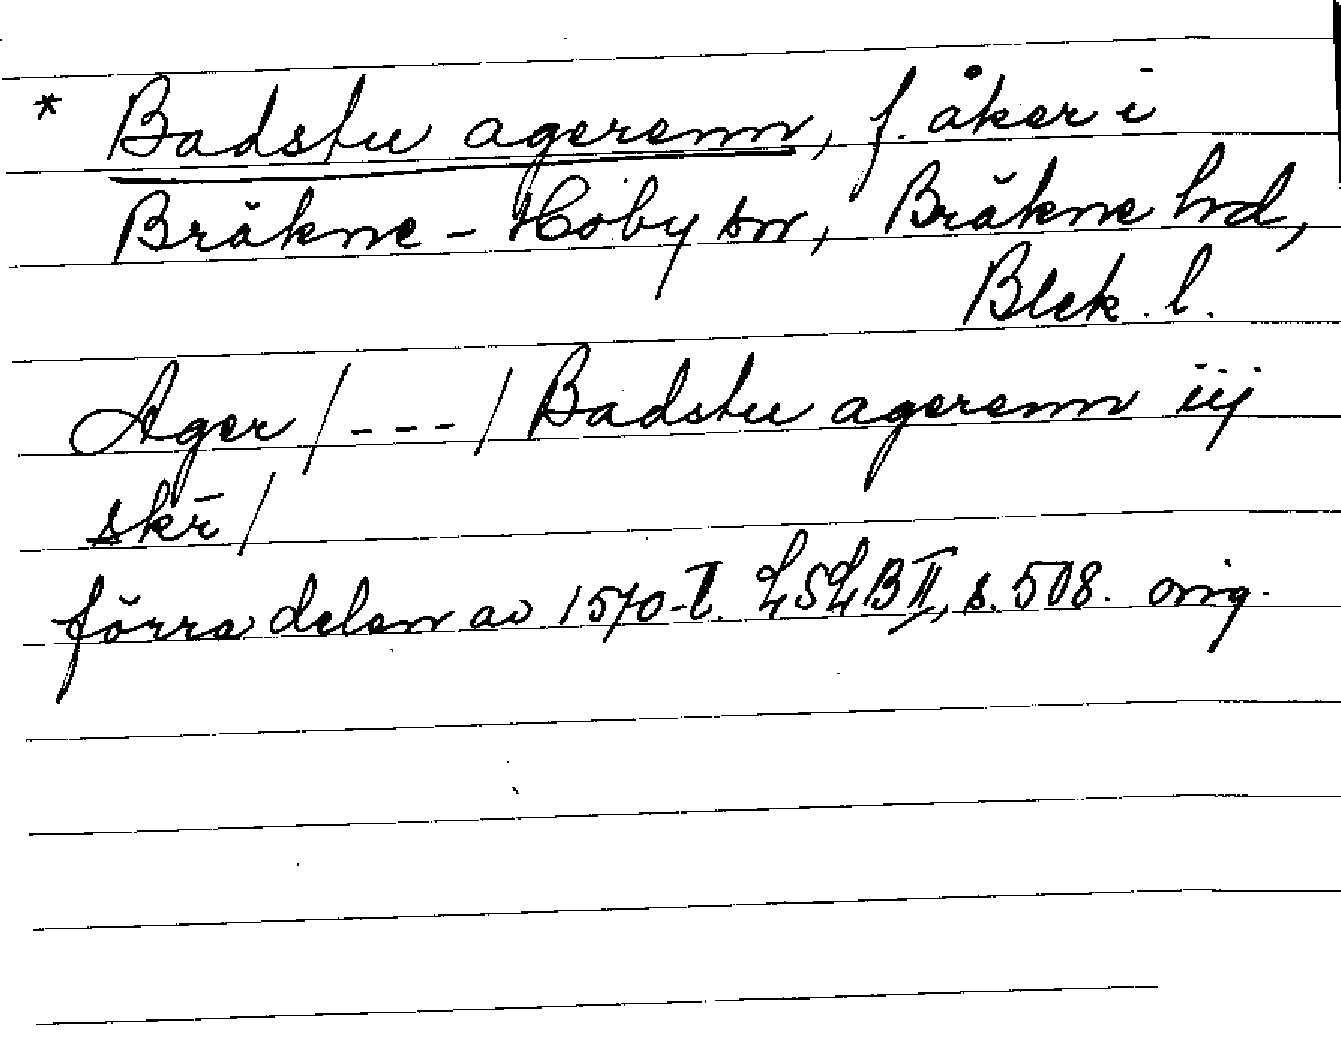 * Badstu agerenn, f. åker i
Bräkne-Hoby sn, Bräkne hd,
Blek. l.
Ager /---/ Badstu agerenn iij
skr̄ /
förra delen av 1570-t. LSLB II, s. 508. orig.